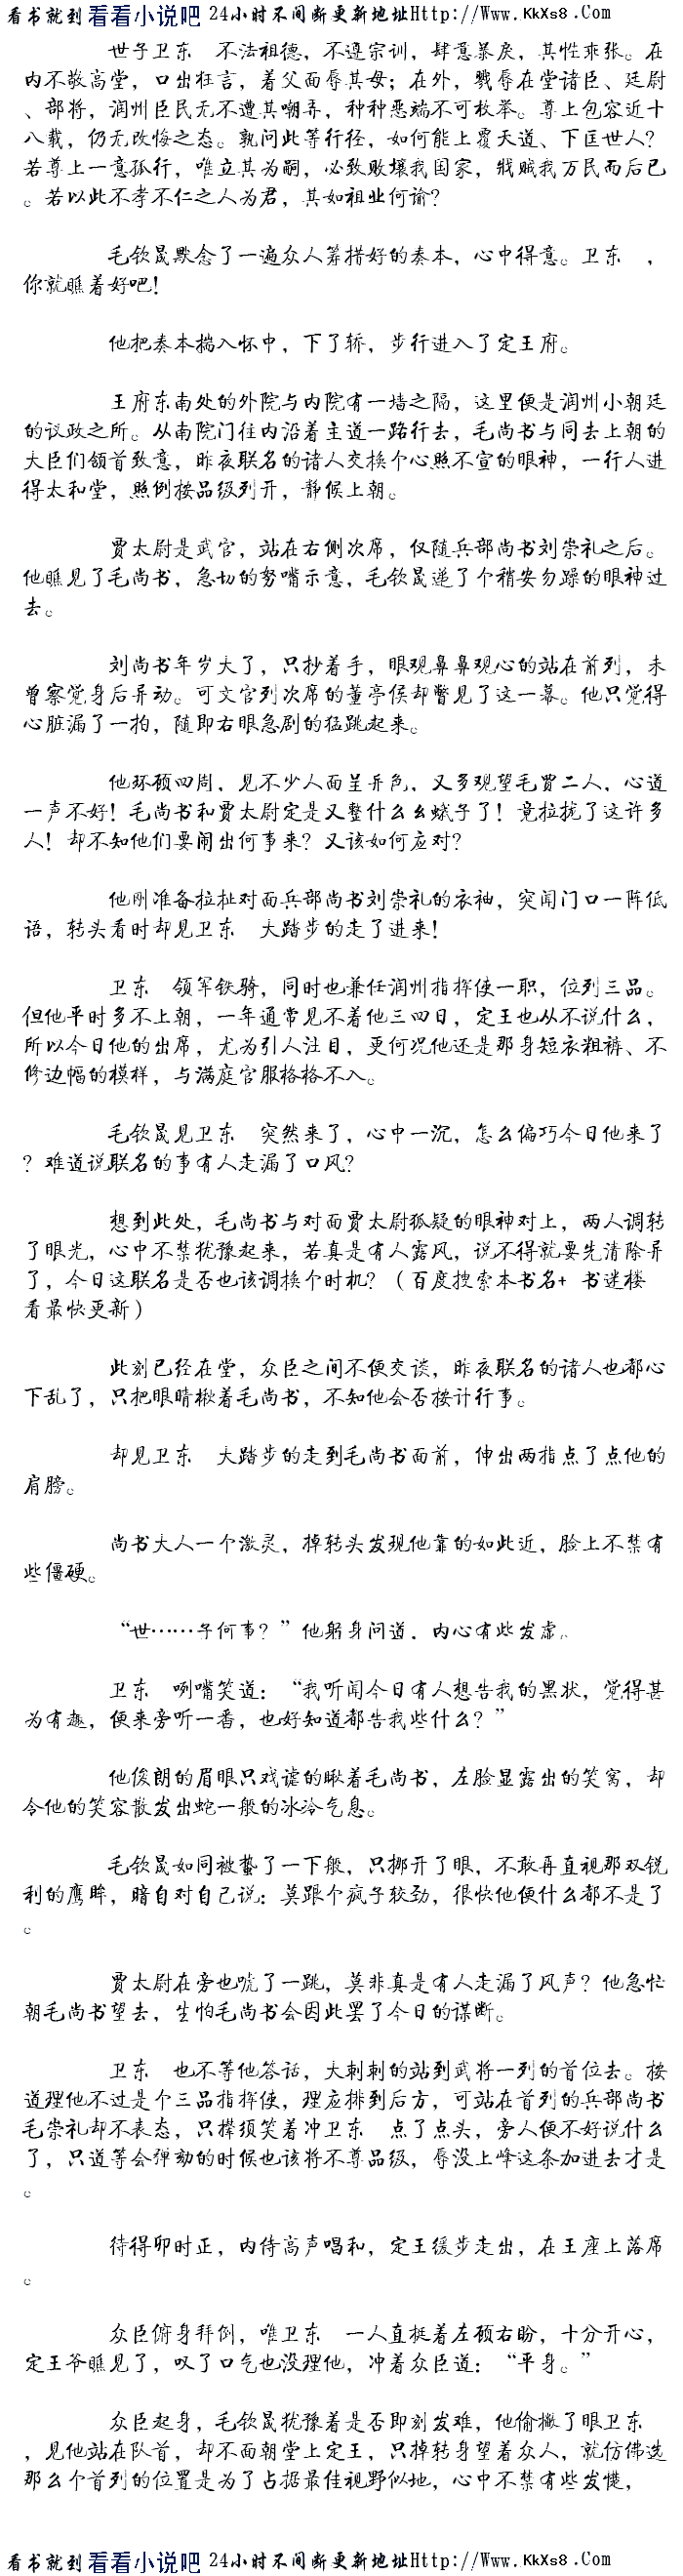 看书就到 看看小说吧 24小时不间断更新地址Http://Www.KkXs8.Com
世子卫东　不法祖德，不遵宗训，肆意暴戾，其性乖张。在
内不敬高堂，口出狂言，着父面辱其母；在外，戮辱在堂诸臣、廷尉
、部将，润州臣民无不遭其嘲弄，种种恶端不可枚举。尊上包容近十
八载，仍无改悔之态。孰问此等行径，如何能上覆天道、下匡世人？
若尊上一意孤行，唯立其为嗣，必致败壤我国家，戕贼我万民而后已
。若以此不孝不仁之人为君，其如祖业何谕？
毛钦晟默念了一遍众人筹措好的奏本，心中得意。卫东　，
你就瞧着好吧！
他把奏本揣入怀中，下了轿，步行进入了定王府。
王府东南处的外院与内院有一墙之隔，这里便是润州小朝廷
的议政之所。从南院门往内沿着主道一路行去，毛尚书与同去上朝的
大臣们颌首致意，昨夜联名的诸人交换个心照不宣的眼神，一行人进
得太和堂，照例按品级列开，静候上朝。
贾太尉是武官，站在右侧次席，仅随兵部尚书刘崇礼之后。
他瞧见了毛尚书，急切的努嘴示意，毛钦晟递了个稍安勿躁的眼神过
去。
刘尚书年岁大了，只抄着手，眼观鼻鼻观心的站在前列，未
曾察觉身后异动。可文官列次席的董亭侯却瞥见了这一幕。他只觉得
心脏漏了一拍，随即右眼急剧的猛跳起来。
他环顾四周，见不少人面呈异色，又多观望毛贾二人，心道
一声不好！毛尚书和贾太尉定是又整什么幺蛾子了！竟拉拢了这许多
人！却不知他们要闹出何事来？又该如何应对？
他刚准备拉扯对面兵部尚书刘崇礼的衣袖，突闻门口一阵低
语，转头看时却见卫东　大踏步的走了进来！
卫东　领军铁骑，同时也兼任润州指挥使一职，位列三品。
但他平时多不上朝，一年通常见不着他三四日，定王也从不说什么，
所以今日他的出席，尤为引人注目，更何况他还是那身短衣粗裤、不
修边幅的模样，与满庭官服格格不入。
毛钦晟见卫东　突然来了，心中一沉，怎么偏巧今日他来了
？难道说联名的事有人走漏了口风？
想到此处，毛尚书与对面贾太尉狐疑的眼神对上，两人调转
了眼光，心中不禁犹豫起来，若真是有人露风，说不得就要先清除异
了，今日这联名是否也该调换个时机？（百度搜索本书名+ 书迷楼
看最快更新）
此刻已经在堂，众臣之间不便交谈，昨夜联名的诸人也都心
下乱了，只把眼睛楸着毛尚书，不知他会否按计行事。
却见卫东　大踏步的走到毛尚书面前，伸出两指点了点他的
肩膀。
尚书大人一个激灵，掉转头发现他靠的如此近，脸上不禁有
些僵硬。
“世……子何事？”他躬身问道，内心有些发虚。
卫东　咧嘴笑道：“我听闻今日有人想告我的黑状，觉得甚
为有趣，便来旁听一番，也好知道都告我些什么？”
他俊朗的眉眼只戏谑的瞅着毛尚书，左脸显露出的笑窝，却
令他的笑容散发出蛇一般的冰冷气息。
毛钦晟如同被蛰了一下般，只挪开了眼，不敢再直视那双锐
利的鹰眸，暗自对自己说：莫跟个疯子较劲，很快他便什么都不是了
。
贾太尉在旁也唬了一跳，莫非真是有人走漏了风声？他急忙
朝毛尚书望去，生怕毛尚书会因此罢了今日的谋断。
卫东　也不等他答话，大刺刺的站到武将一列的首位去。按
道理他不过是个三品指挥使，理应排到后方，可站在首列的兵部尚书
毛崇礼却不表态，只撵须笑着冲卫东　点了点头，旁人便不好说什么
了，只道等会弹劾的时候也该将不尊品级，辱没上峰这条加进去才是
。
待得卯时正，内侍高声唱和，定王缓步走出，在王座上落席
。
众臣俯身拜倒，唯卫东　一人直挺着左顾右盼，十分开心，
定王爷瞧见了，叹了口气也没理他，冲着众臣道：“平身。”
众臣起身，毛钦晟犹豫着是否即刻发难，他偷撇了眼卫东
，见他站在队首，却不面朝堂上定王，只掉转身望着众人，就仿佛选
那么个首列的位置是为了占据最佳视野似地，心中不禁有些发憷，
看书就到 看看小说吧 24小时不间断更新地址Http://Www.KkXs8.Com